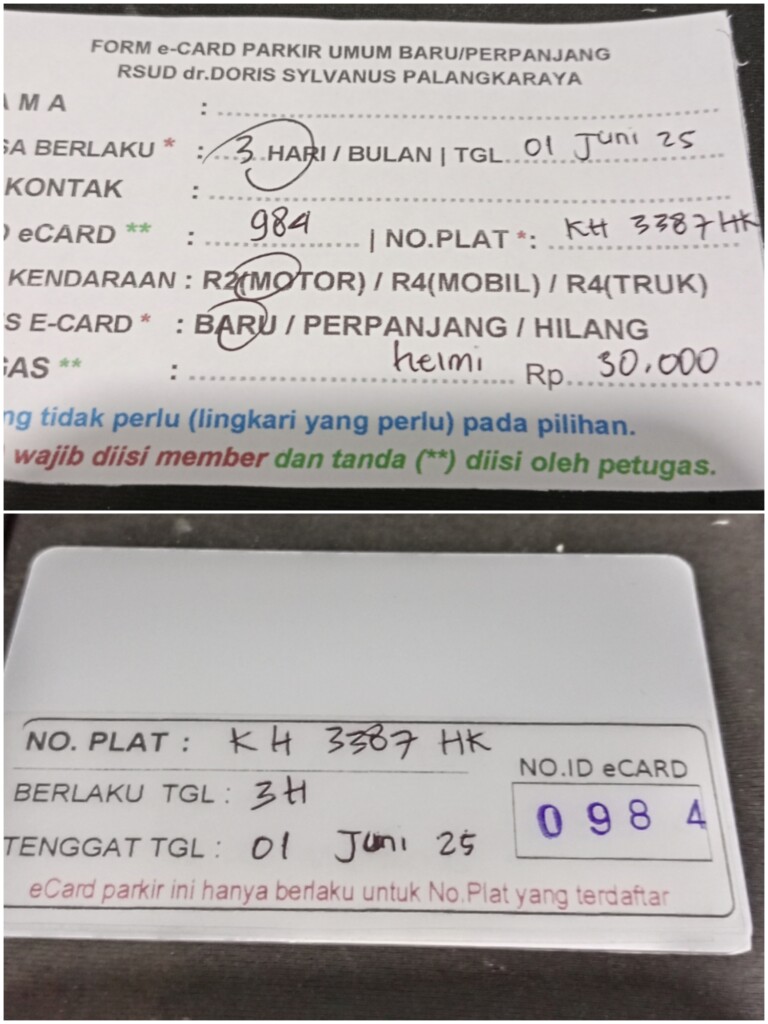 FORM e-CARD PARKIR UMUM BARU/PERPANJANG
RSUD dr.DORIS SYLVANUS PALANGKARAYA
AMA :
SA BERLAKU * : 3 HARI / BULAN | TGL 01 Juni 25
KONTAK :
eCARD ** : 984 | NO.PLAT *: KH 3387 HK
KENDARAAN : R2(MOTOR) / R4(MOBIL) / R4(TRUK)
S E-CARD * : BARU / PERPANJANG / HILANG
GAS ** : helmi Rp. 30.000
ng tidak perlu (lingkari yang perlu) pada pilihan.
wajib diisi member dan tanda (**) diisi oleh petugas.
NO. PLAT : KH 3387 HK
NO.ID eCARD
BERLAKU TGL : 3H
0984
TENGGAT TGL : 01 Juni 25
eCard parkir ini hanya berlaku untuk No.Plat yang terdaftar